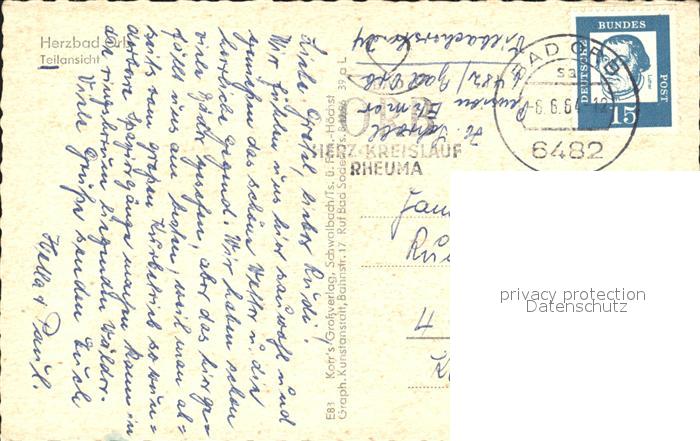 Herzbad Orb
Teilansicht
Liebe Gretel, lieber Rudi!
Wir fühlen uns hier sauwohl und
genießen das schöne Wetter u. die
herrliche Gegend. Wir haben schon
viele Bäder gesehen, aber das hier ge=
fällt uns am besten, weil man ab=
seits vom großen Kurbetrieb so wun=
derbare Spaziergänge machen kann in
den ringsherum liegenden Wäldern.
Viele Grüße senden Euch
Hella u. Paul.
E81 Korr's Großverlag, Schwalbach/Ts. ü. Ffm.-Höchst
Graph. Kunstanstalt, Bahnstr. 17 Ruf Bad Soden 39 a L
Pension
6482 / Bad Orb
Villbacherstr.
ORB
HERZ-KREISLAUF
RHEUMA
BAD ORB
6.6.64
6482
DEUTSCHE BUNDES POST
15
Fam
privacy protection
Datenschutz